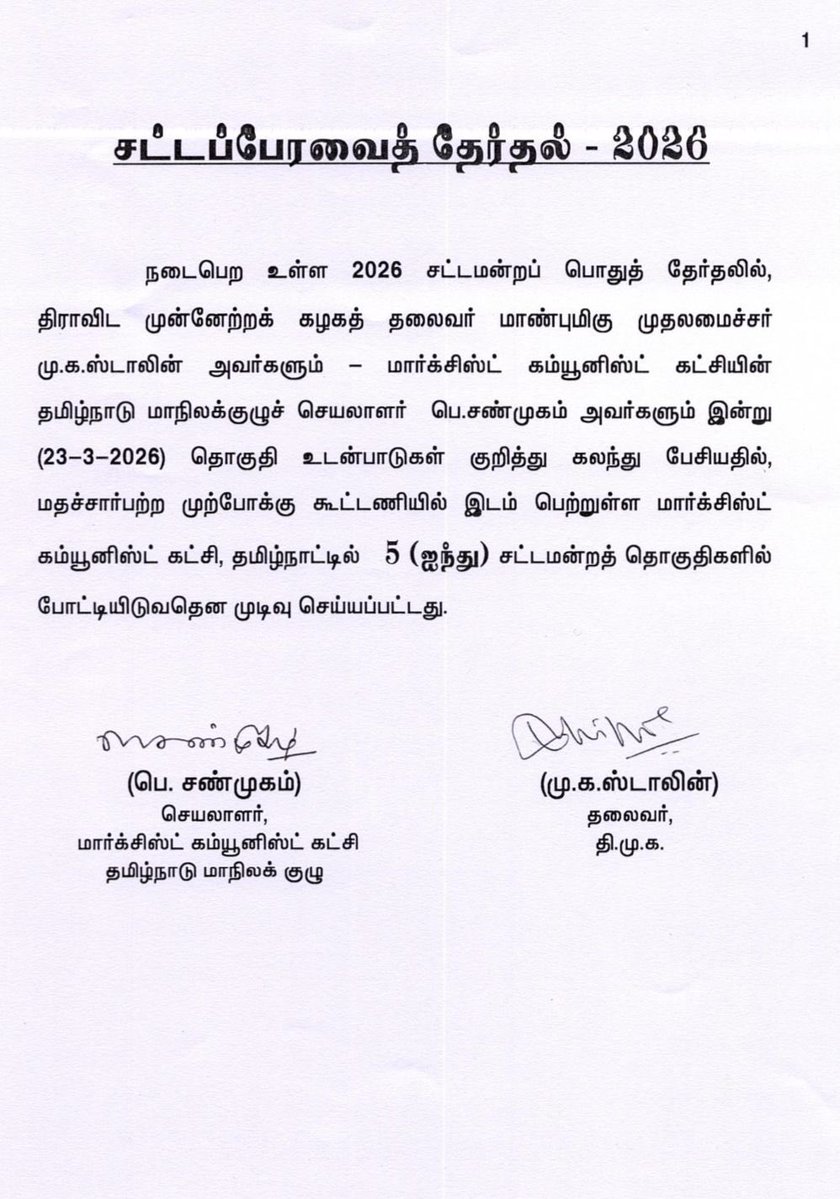 1
சட்டப்பேரவைத் தேர்தல் - 2026
நடைபெற உள்ள 2026 சட்டமன்றப் பொதுத் தேர்தலில்,
திராவிட முன்னேற்றக் கழகத் தலைவர் மாண்புமிகு முதலமைச்சர்
மு.க.ஸ்டாலின் அவர்களும் – மார்க்சிஸ்ட் கம்யூனிஸ்ட் கட்சியின்
தமிழ்நாடு மாநிலக்குழுச் செயலாளர் பெ.சண்முகம் அவர்களும் இன்று
(23–3–2026) தொகுதி உடன்பாடுகள் குறித்து கலந்து பேசியதில்,
மதச்சார்பற்ற முற்போக்கு கூட்டணியில் இடம் பெற்றுள்ள மார்க்சிஸ்ட்
கம்யூனிஸ்ட் கட்சி, தமிழ்நாட்டில் 5 (ஐந்து) சட்டமன்றத் தொகுதிகளில்
போட்டியிடுவதென முடிவு செய்யப்பட்டது.
(பெ. சண்முகம்) (மு.க.ஸ்டாலின்)
செயலாளர், தலைவர்,
மார்க்சிஸ்ட் கம்யூனிஸ்ட் கட்சி தி.மு.க.
தமிழ்நாடு மாநிலக் குழு